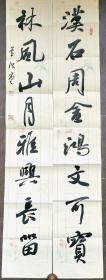 漢石周金鴻文可寶
林風山月雅興長留